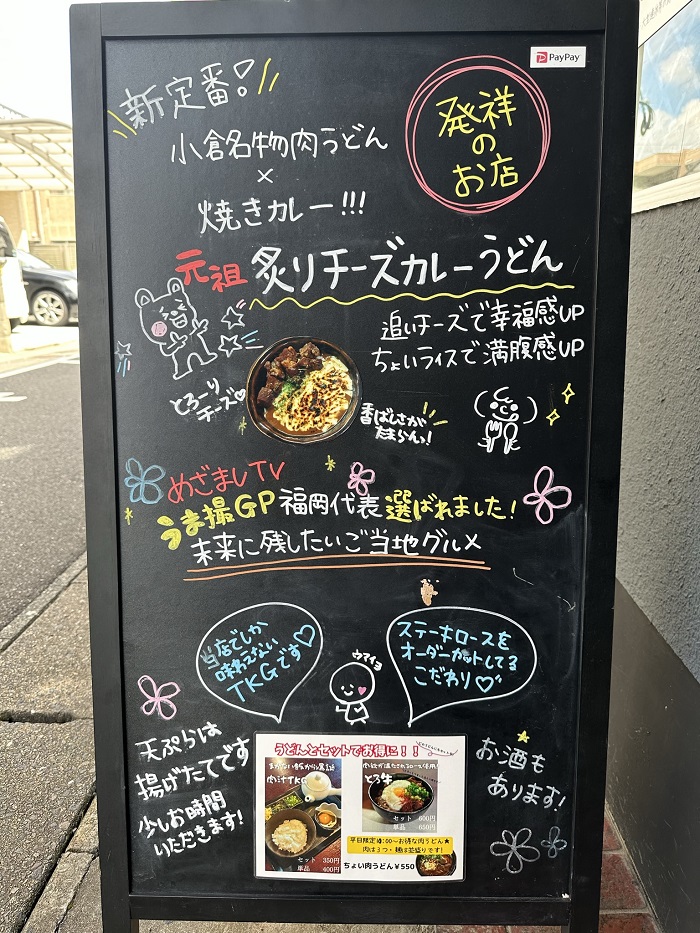 PayPay
新定番!
小倉名物肉うどん
×
焼きカレー!!!
発祥
の
お店
元祖 炙りチーズカレーうどん
追いチーズで幸福感UP
ちょいライスで満腹感UP
とろーり
チーズ♡
香ばしさが
たまらん!
めざましTV
うま撮GP 福岡代表 選ばれました!
未来に残したいご当地グルメ
当店でしか
味わえない
TKGです♡
ステーキロースを
オーダーカットしてる
こだわり♡
ウマイヨ
天ぷらは
揚げたてです
少しお時間
いただきます!
お酒も
あります!
うどんとセットでお得に!!
まかない飯から
肉汁TKG
セット 350円
単品 400円
とろ牛
セット 600円
単品 650円
お得な肉うどん★
肉は3つ・麺は並盛りです!
ちょい肉うどん¥550